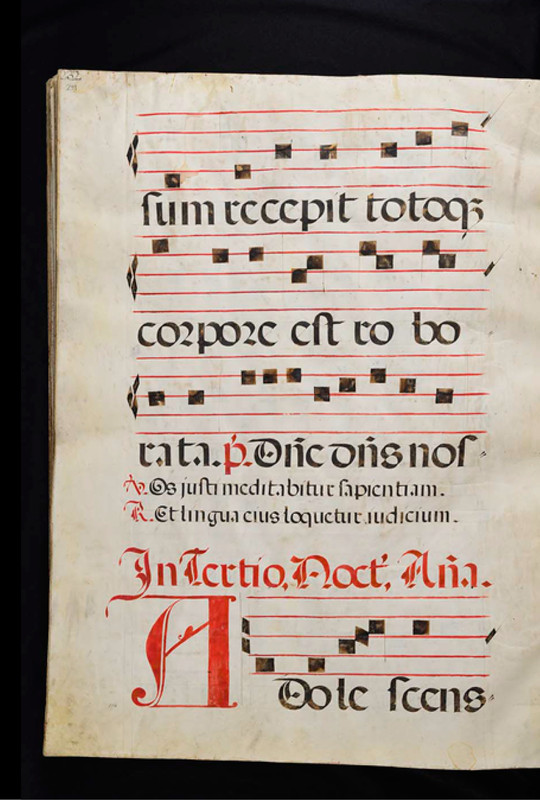 sum recepit totoqꝫ
corpore est ro bo
rata. p̄. Dñe dñs nos
V. Os justi meditabitur sapientiam.
R. Et lingua eius loquetur iudicium.
In Tertio, Noct', Aña.
A Dole scens